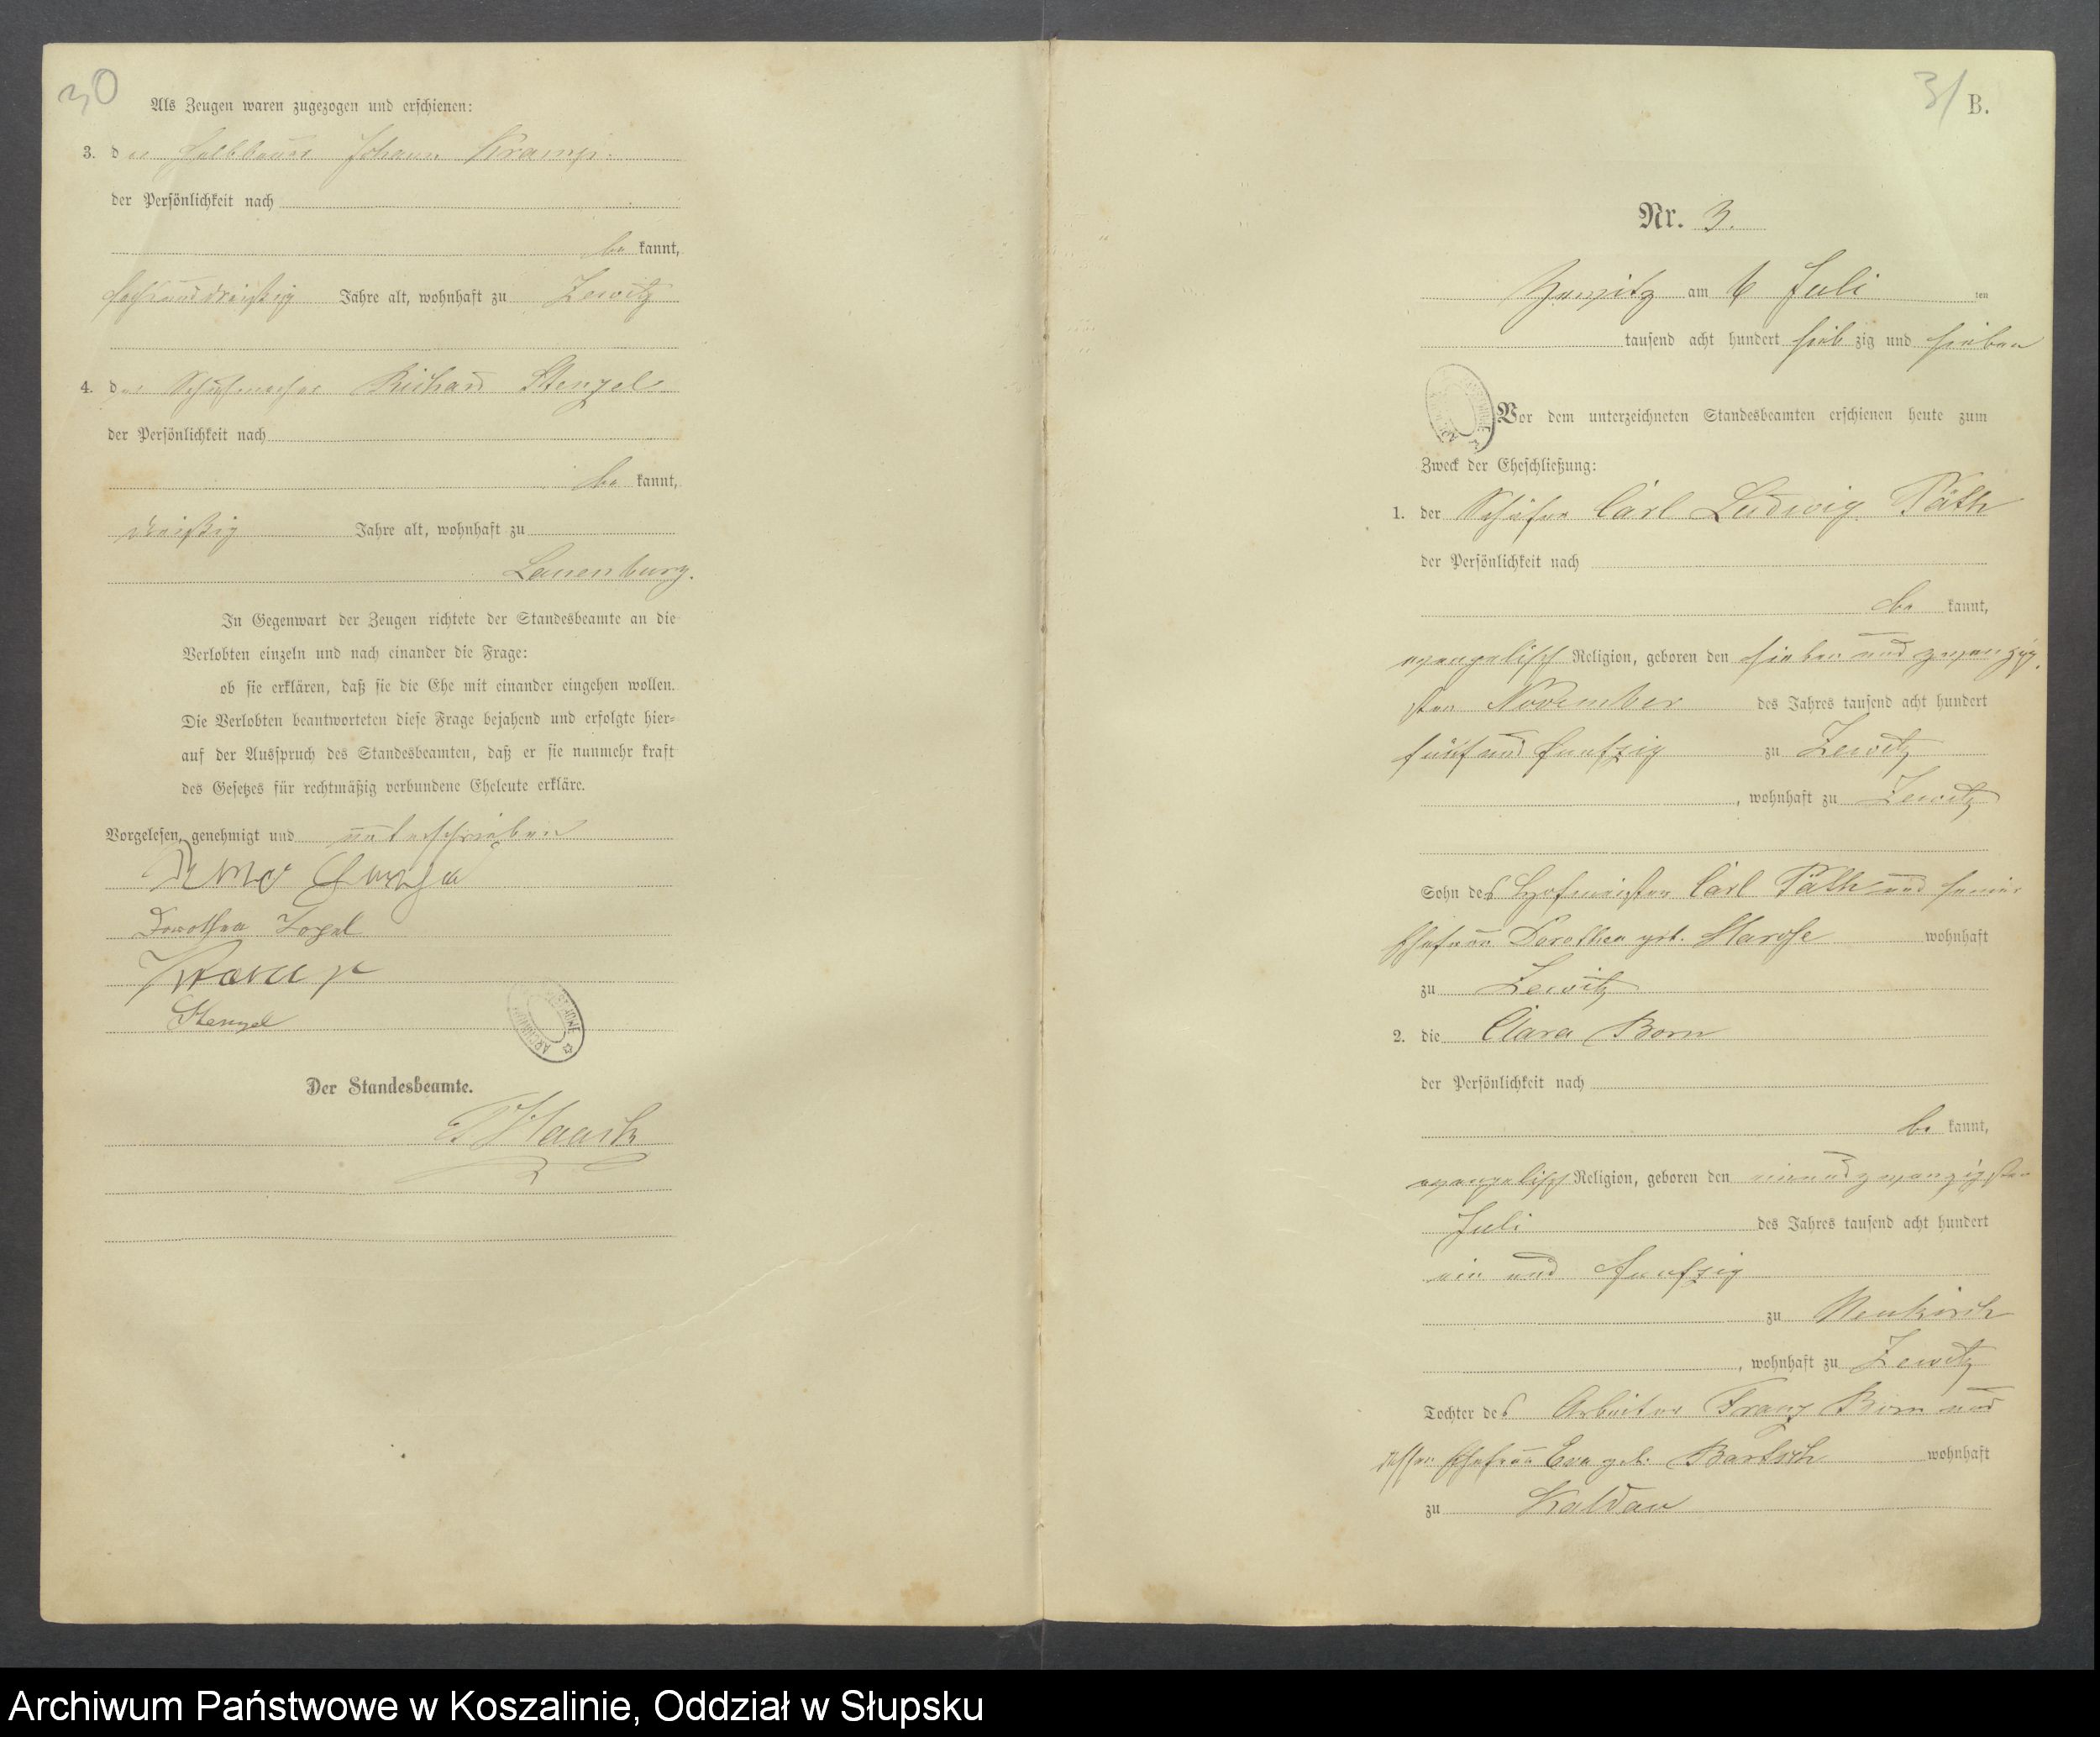 30
Als Zeugen waren zugezogen und erschienen:
3. der Halbbauer Johann Kramp.
der Persönlichkeit nach
be kannt,
sechsunddreißig Jahre alt, wohnhaft zu Zewitz
4. der Richard Stenzel
der Persönlichkeit nach
be kannt,
dreißig Jahre alt, wohnhaft zu
Lauenburg.
In Gegenwart der Zeugen richtete der Standesbeamte an die
Verlobten einzeln und nach einander die Frage:
ob sie erklären, daß sie die Ehe mit einander eingehen wollen.
Die Verlobten beantworteten diese Frage bejahend und erfolgte hier-
auf der Ausspruch des Standesbeamten, daß er sie nunmehr kraft
des Gesetzes für rechtmäßig verbundene Eheleute erkläre.
Vorgelesen, genehmigt und unterschrieben
Dorothea
Kramp
Stenzel
Der Standesbeamte.
Haack
31
B.
Nr. 3.
Zewitz am 6 Juli ten
tausend acht hundert sieb zig und sieben
Vor dem unterzeichneten Standesbeamten erschienen heute zum
Zweck der Eheschließung:
1. der Schäfer Carl Ludwig Päth
der Persönlichkeit nach
be kannt,
evangelisch Religion, geboren den sieben und zwanzig-
sten November des Jahres tausend acht hundert
fünf und funfzig zu Zewitz
, wohnhaft zu Zewitz
Sohn des Hofmeister Carl Päth und seiner
Ehefrau Dorothea geb. wohnhaft
zu Zewitz
2. die Clara Born
der Persönlichkeit nach
be kannt,
evangelisch Religion, geboren den einundzwanzigsten
Juli des Jahres tausend acht hundert
ein und funfzig
zu Neukirch
, wohnhaft zu Zewitz
Tochter des Arbeiter Franz Born und
dessen Ehefrau Eva geb. Bartsch wohnhaft
zu Kaldau
Archiwum Państwowe w Koszalinie, Oddział w Słupsku